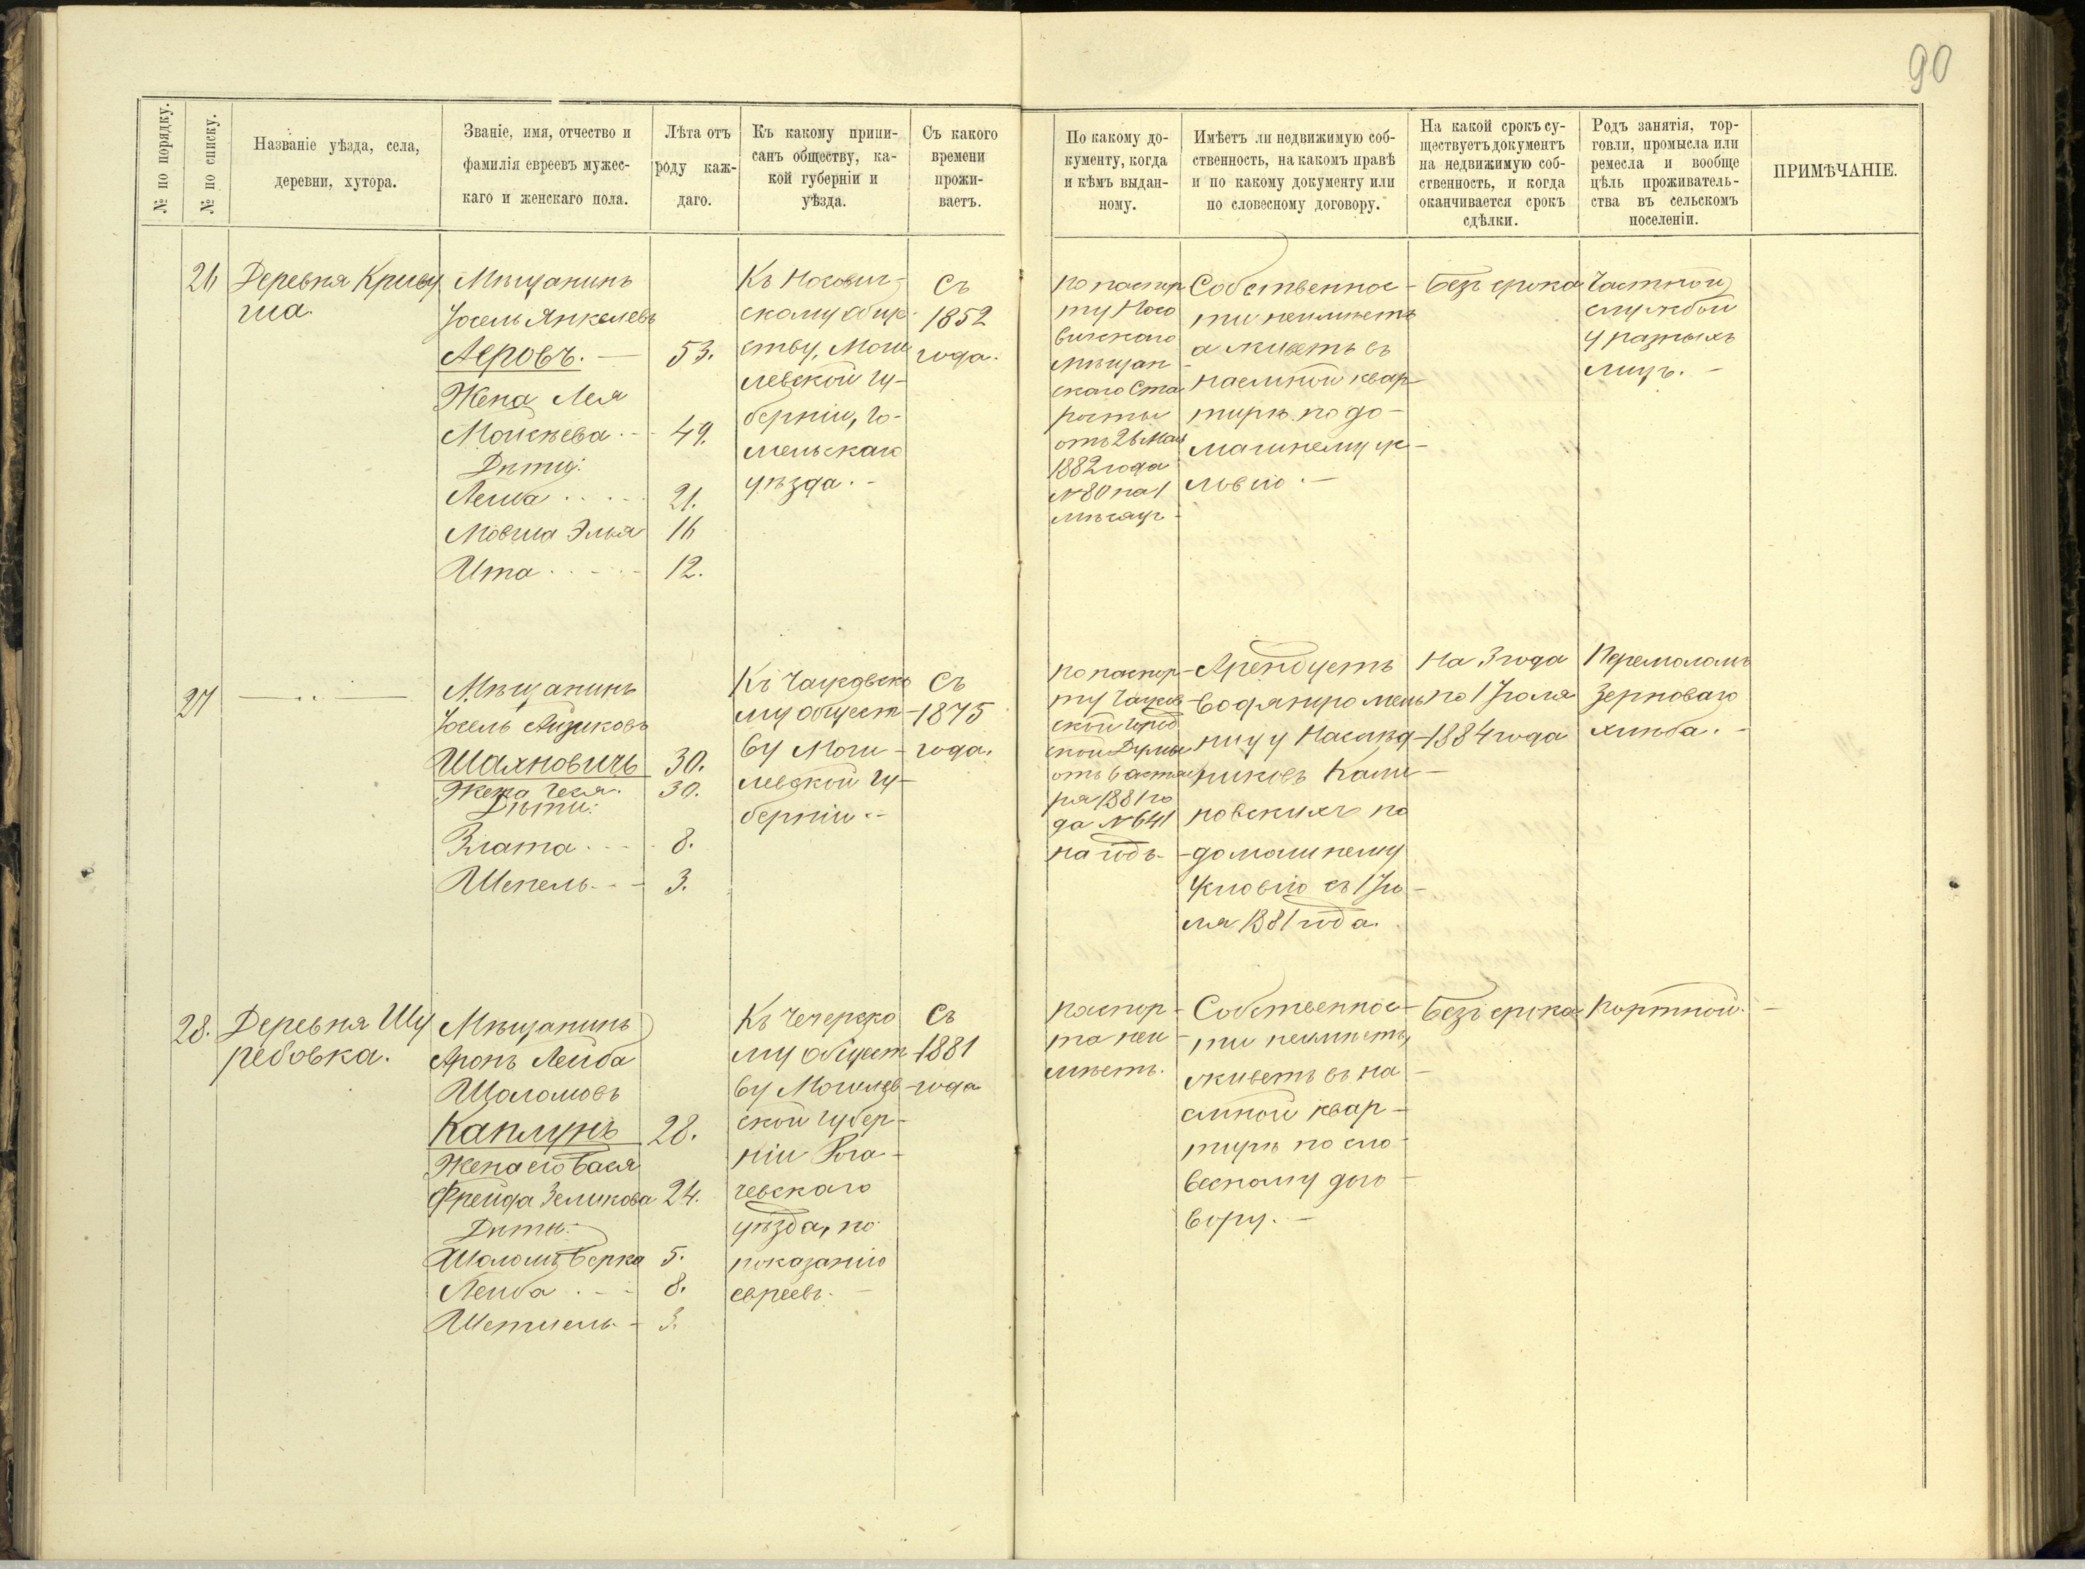 90
№ по порядку.
№ по списку.
Названіе уѣзда, села,
деревни, хутора.
Званіе, имя, отчество и
фамилія евреевъ мужес-
каго и женскаго пола.
Лѣта отъ
роду каж-
даго.
Къ какому припи-
санъ обществу, ка-
кой губерніи и
уѣзда.
Съ какого
времени
прожи-
ваетъ.
По какому до-
кументу, когда
и кѣмъ выдан-
ному.
Имѣетъ ли недвижимую соб-
ственность, на какомъ правѣ
и по какому документу или
по словесному договору.
На какой срокъ су-
ществуетъ документъ
на недвижимую соб-
ственность, и когда
оканчивается срокъ
сдѣлки.
Родъ занятія, тор-
говли, промысла или
ремесла и вообще
цѣль проживатель-
ства въ сельскомъ
поселеніи.
ПРИМѢЧАНІЕ.
26
Деревня Криву
ша
Мѣщанинъ
Іосель Янкелевъ
Аеровъ. —
Жена Лея
Моисѣева
Дѣти:
Лейба
Мовша Элья
Ита
53.
49.
21.
16
12.
Къ Носович-
скому обще-
ству, Моги
левской гу-
берніи, Го-
мельскаго
уѣзда. -
Съ
1852
года.
По паспор
ту Носо
вичскаго
мѣщан-
скаго Ста
росты
отъ 26 Мая
1882 года
№ 80 на 1
мѣсяц-
Собственнос-
ти неимѣетъ
а живетъ въ
наемной квар-
тирѣ по до-
машнему ус-
ловію. —
Безъ срока
Частной
службой
у разныхъ
лицъ. -
27
— .. —
Мѣщанинъ
Іосель Айзиковъ
Шахновичъ
Жена Чеся.
Дѣти:
Злата
Шепель
30.
30.
8.
3.
Къ Чаусовско
му общест-
ву Моги-
левской гу-
берніи -
Съ
1875
года.
По паспор-
ту Чаусов
ской Город
ской Думы
отъ 6 октяб
ря 1881 го
да № 641
на годъ.
Арендуетъ
водяную мель
ницу у Наслѣд-
никовъ Кали-
новскихъ по
домашнему
условію съ 1 Ію-
ля 1881 года.
На 3 года
по 1 Іюля
1884 года
Перемоломъ
зерноваго
хлѣба. -
28.
Деревня Шу
ребовка.
Мѣщанинъ
Аронъ Лейба
Шоломовъ
Каплунъ
Жена его Бася
Фрейда Зеликова
Дѣти:
Шоломъ Берка
Лейба
Шетмель
28.
24.
5.
8.
3.
Къ Чечерско
му общест
ву Могилев-
ской губер-
ніи Рога-
чевскаго
уѣзда, по
показанію
евреевъ. —
Съ
1881
года
Паспор-
та неи-
мѣетъ.
Собственнос-
ти неимѣетъ,
живетъ въ на-
емной квар-
тирѣ по сло-
весному дого-
вору. —
Безъ срока
Портной. —